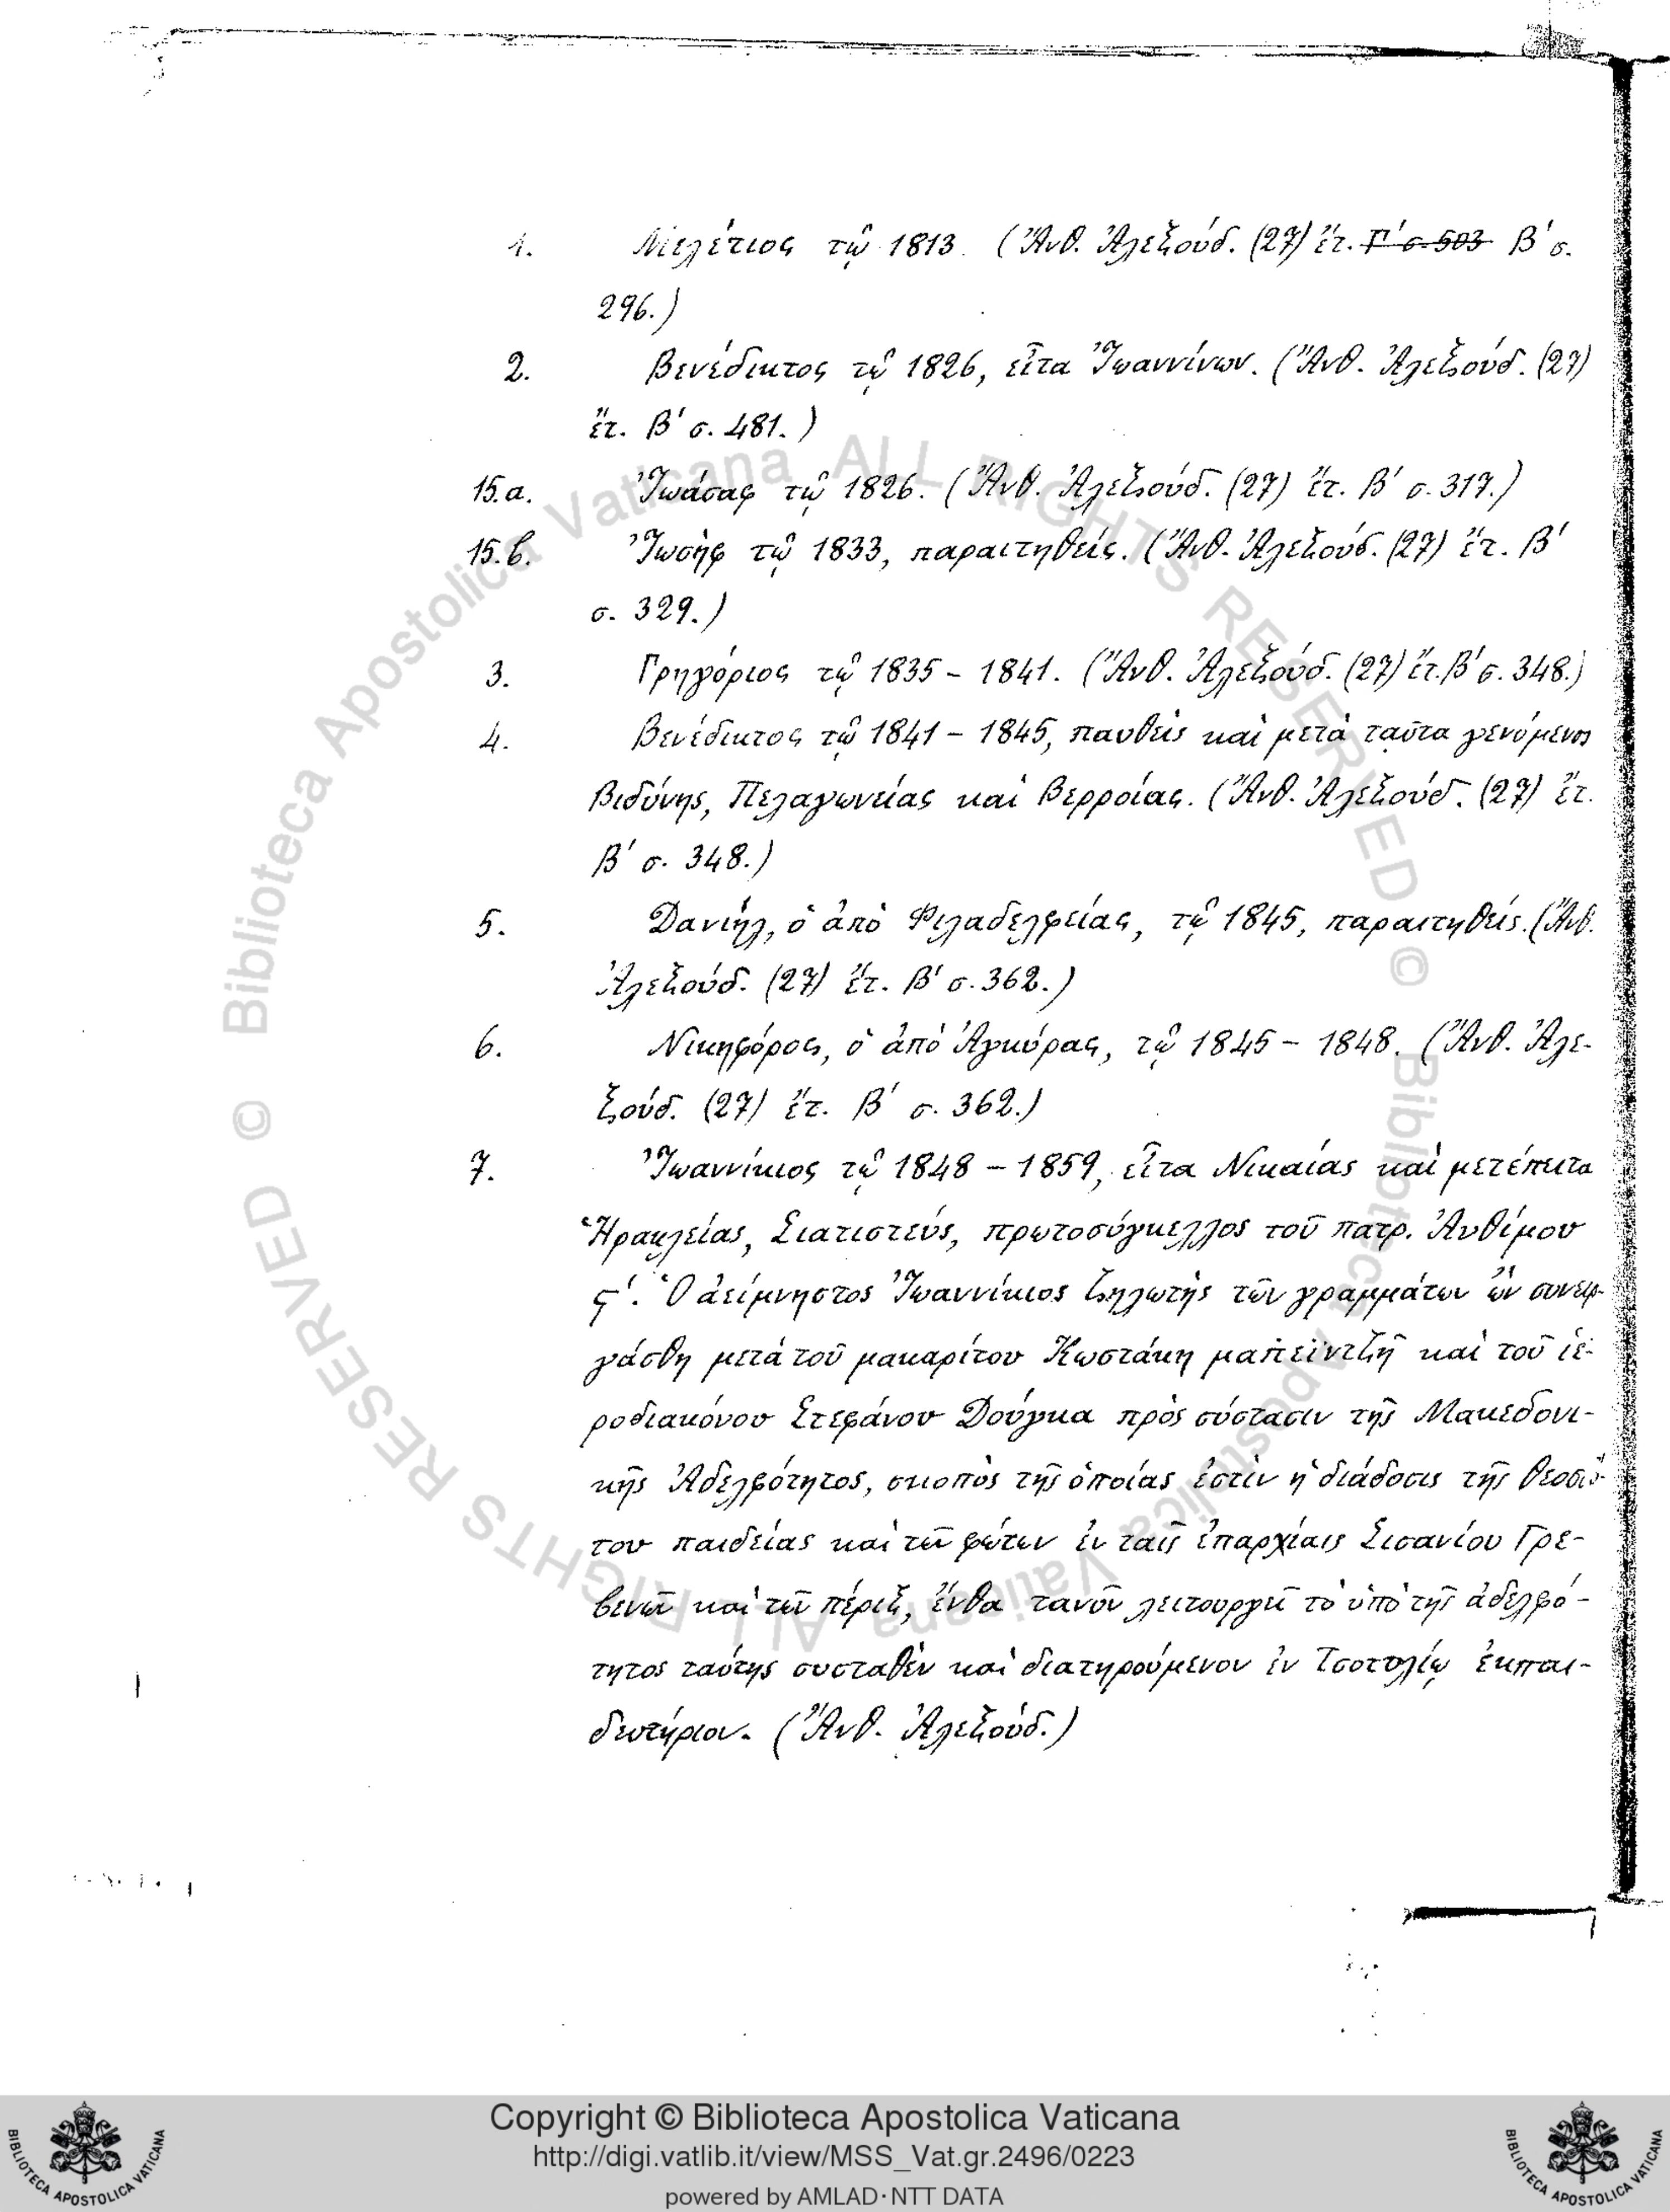 1. Μελέτιος τῷ 1813. (Ἄνθ. Ἀλεξούδ. (27) ἔτ. Γ' σ. 503 Β' σ.
296.)
2. Βενέδικτος τῷ 1826, εἶτα Ἰωαννίνων. (Ἄνθ. Ἀλεξούδ. (27)
ἔτ. Β' σ. 481.)
15.a. Ἰωάσαφ τῷ 1826. (Ἄνθ. Ἀλεξούδ. (27) ἔτ. Β' σ. 317.)
15.b. Ἰωσὴφ τῷ 1833, παραιτηθείς. (Ἄνθ. Ἀλεξούδ. (27) ἔτ. Β'
σ. 329.)
3. Γρηγόριος τῷ 1835 - 1841. (Ἄνθ. Ἀλεξούδ. (27) ἔτ. Β' σ. 348.)
4. Βενέδικτος τῷ 1841 - 1845, παυθεὶς καὶ μετὰ ταῦτα γενόμενος
Βιδύνης, Πελαγωνείας καὶ Βερροίας. (Ἄνθ. Ἀλεξούδ. (27) ἔτ.
Β' σ. 348.)
5. Δανιήλ, ὁ ἀπὸ Φιλαδελφείας, τῷ 1845, παραιτηθείς. (Ἄνθ.
Ἀλεξούδ. (27) ἔτ. Β' σ. 362.)
6. Νικηφόρος, ὁ ἀπὸ Ἀγκύρας, τῷ 1845 - 1848. (Ἄνθ. Ἀλε-
ξούδ. (27) ἔτ. Β' σ. 362.)
7. Ἰωαννίκιος τῷ 1848 - 1859, εἶτα Νικαίας καὶ μετέπειτα
Ἡρακλείας, Σιατιστεύς, πρωτοσύγκελλος τοῦ πατρ. Ἀνθίμου
ς'. Ὁ ἀείμνηστος Ἰωαννίκιος ζηλωτὴς τῶν γραμμάτων ὢν συνειρ-
γάσθη μετὰ τοῦ μακαρίτου Κωστάκη μαπεϊντζῆ καὶ τοῦ ἱε-
ροδιακόνου Στεφάνου Δούγκα πρὸς σύστασιν τῆς Μακεδονι-
κῆς Ἀδελφότητος, σκοπὸς τῆς ὁποίας ἐστὶν ἡ διάδοσις τῆς θεοσδό-
του παιδείας καὶ τῶν φώτων ἐν ταῖς ἐπαρχίαις Σισανίου Γρε-
βενῶν καὶ τῶν πέριξ, ἔνθα τανῦν λειτουργεῖ τὸ ὑπὸ τῆς ἀδελφό-
τητος ταύτης συσταθὲν καὶ διατηρούμενον ἐν Τσοτυλίῳ ἐκπαι-
δευτήριον. (Ἄνθ. Ἀλεξούδ.)
© Biblioteca Apostolica Vaticana ALL RIGHTS RESERVED © Biblioteca Apostolica Vaticana ALL RIGHTS RESERVED
BIBLIOTECA APOSTOLICA VATICANA
Copyright © Biblioteca Apostolica Vaticana
http://digi.vatlib.it/view/MSS_Vat.gr.2496/0223
powered by AMLAD·NTT DATA
BIBLIOTECA APOSTOLICA VATICANA